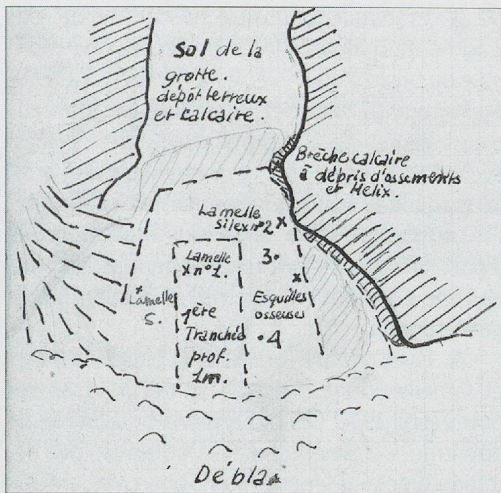 Sol de la
grotte.
dépôt terreux
et calcaire.
Brèche calcaire
à dépris d'ossements
et Helix.
Lamelle
silex n°2 x
Lamelle
x n°1.
3.
x
Lamelle
5.
Esquilles
osseuses
.4
1ère
Tranchée
prof.
1m.
Débla